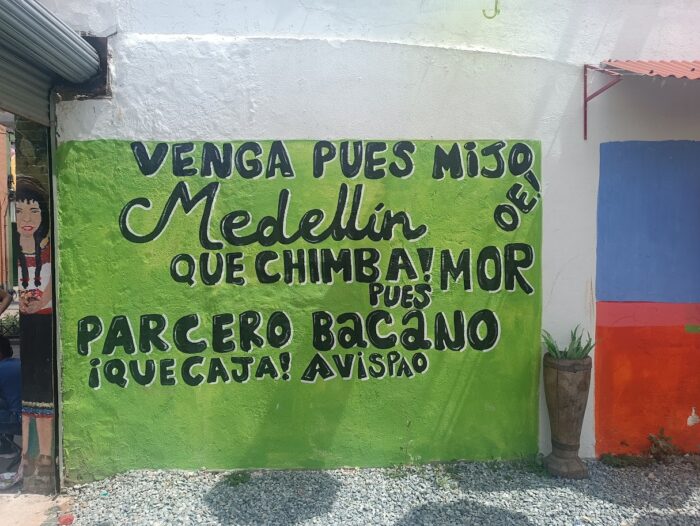 VENGA PUES MIJO
OE!
Medellín
QUE CHIMBA! MOR
PUES
PARCERO BACANO
¡QUE CAJA! AVISPAO